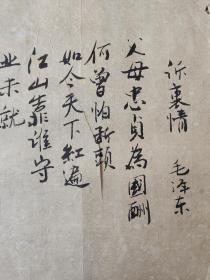 诉衷情 毛泽东
父母忠贞為國酬
何曾怕断頭
如今天下红遍
江山靠谁守
业未就